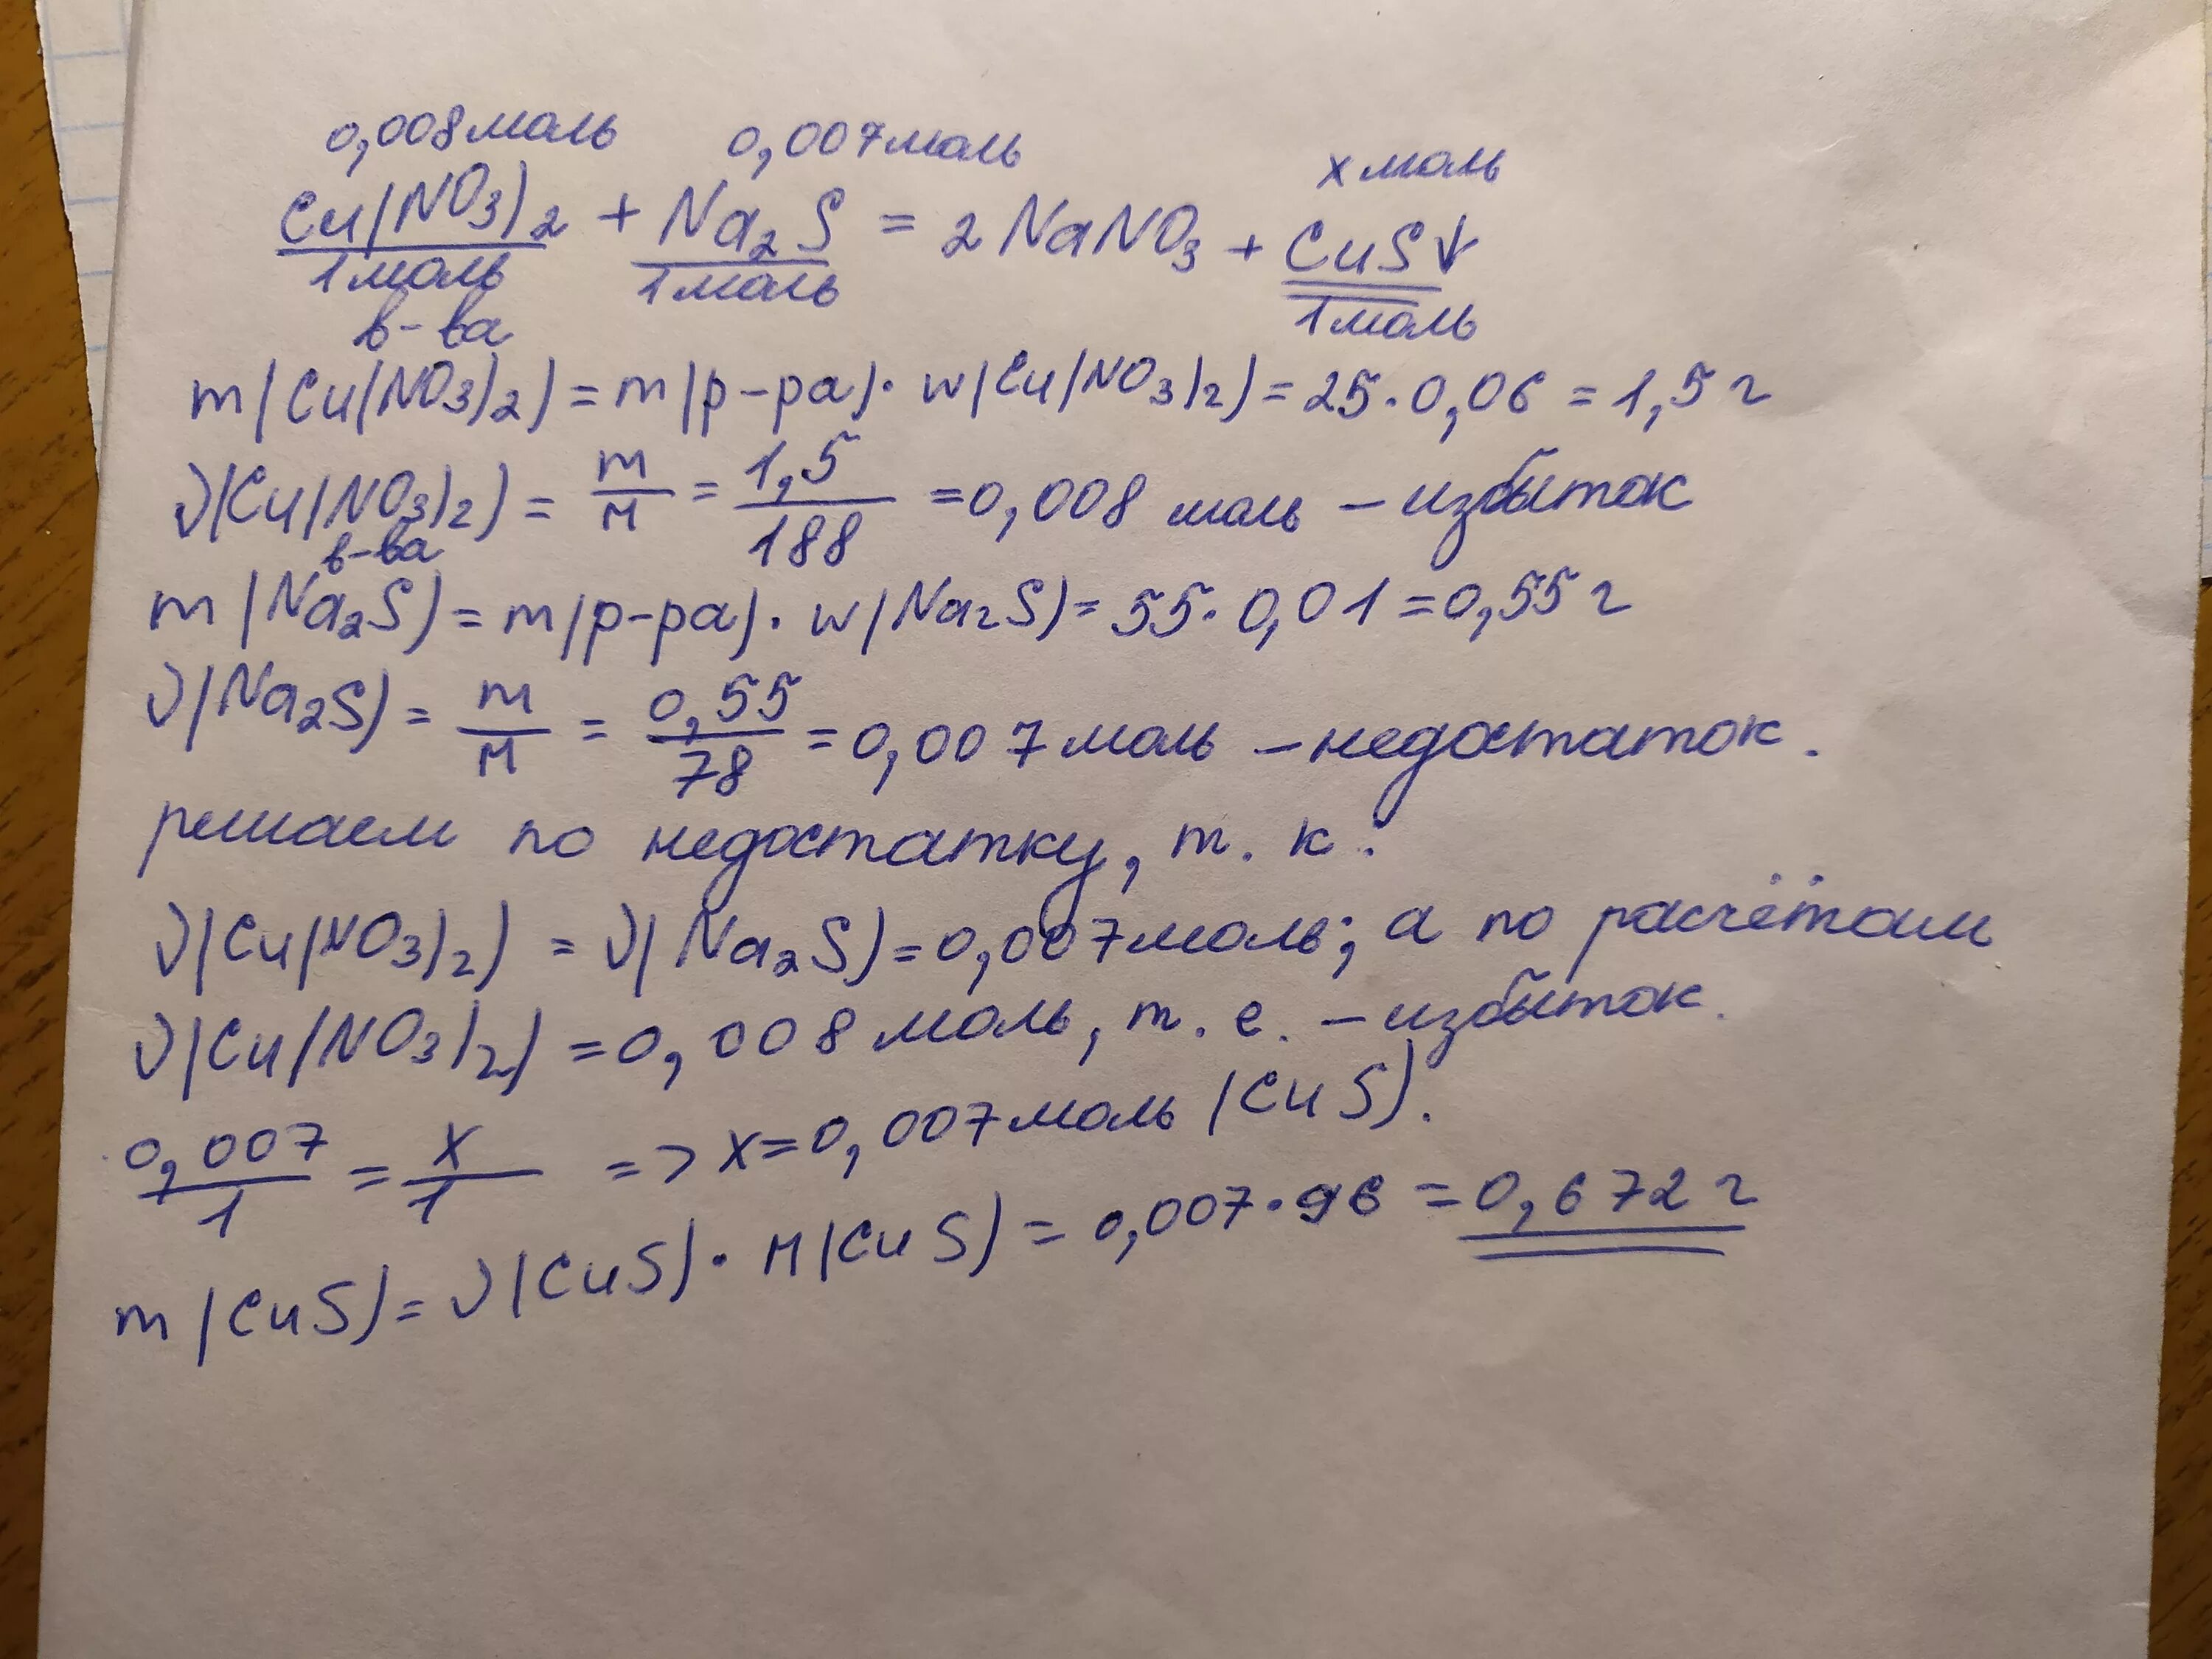 0,008моль 0,007моль x моль
Cu(NO3)2 + Na2S = 2 NaNO3 + CuS↓
1моль 1моль 1моль
в-ва
m(Cu(NO3)2) = m(р-ра) · w(Cu(NO3)2) = 25 · 0,06 = 1,5 г
ν(Cu(NO3)2) = m/M = 1,5/188 = 0,008 моль – избыток
в-ва
m(Na2S) = m(р-ра) · w(Na2S) = 55 · 0,01 = 0,55 г
ν(Na2S) = m/M = 0,55/78 = 0,007 моль – недостаток.
решаем по недостатку, т. к.
ν(Cu(NO3)2) = ν(Na2S) = 0,007моль; а по расчётам
ν(Cu(NO3)2) = 0,008 моль, т. е. – избыток.
0,007/1 = x/1 => x = 0,007моль (CuS).
m(CuS) = ν(CuS) · M(CuS) = 0,007 · 96 = 0,672 г